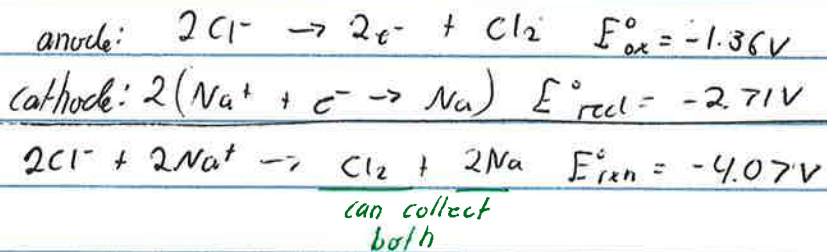 anode: 2Cl⁻ → 2e⁻ + Cl₂ E°ox = -1.36V
cathode: 2(Na⁺ + e⁻ → Na) E°red = -2.71V
2Cl⁻ + 2Na⁺ → Cl₂ + 2Na E°rxn = -4.07V
can collect
both